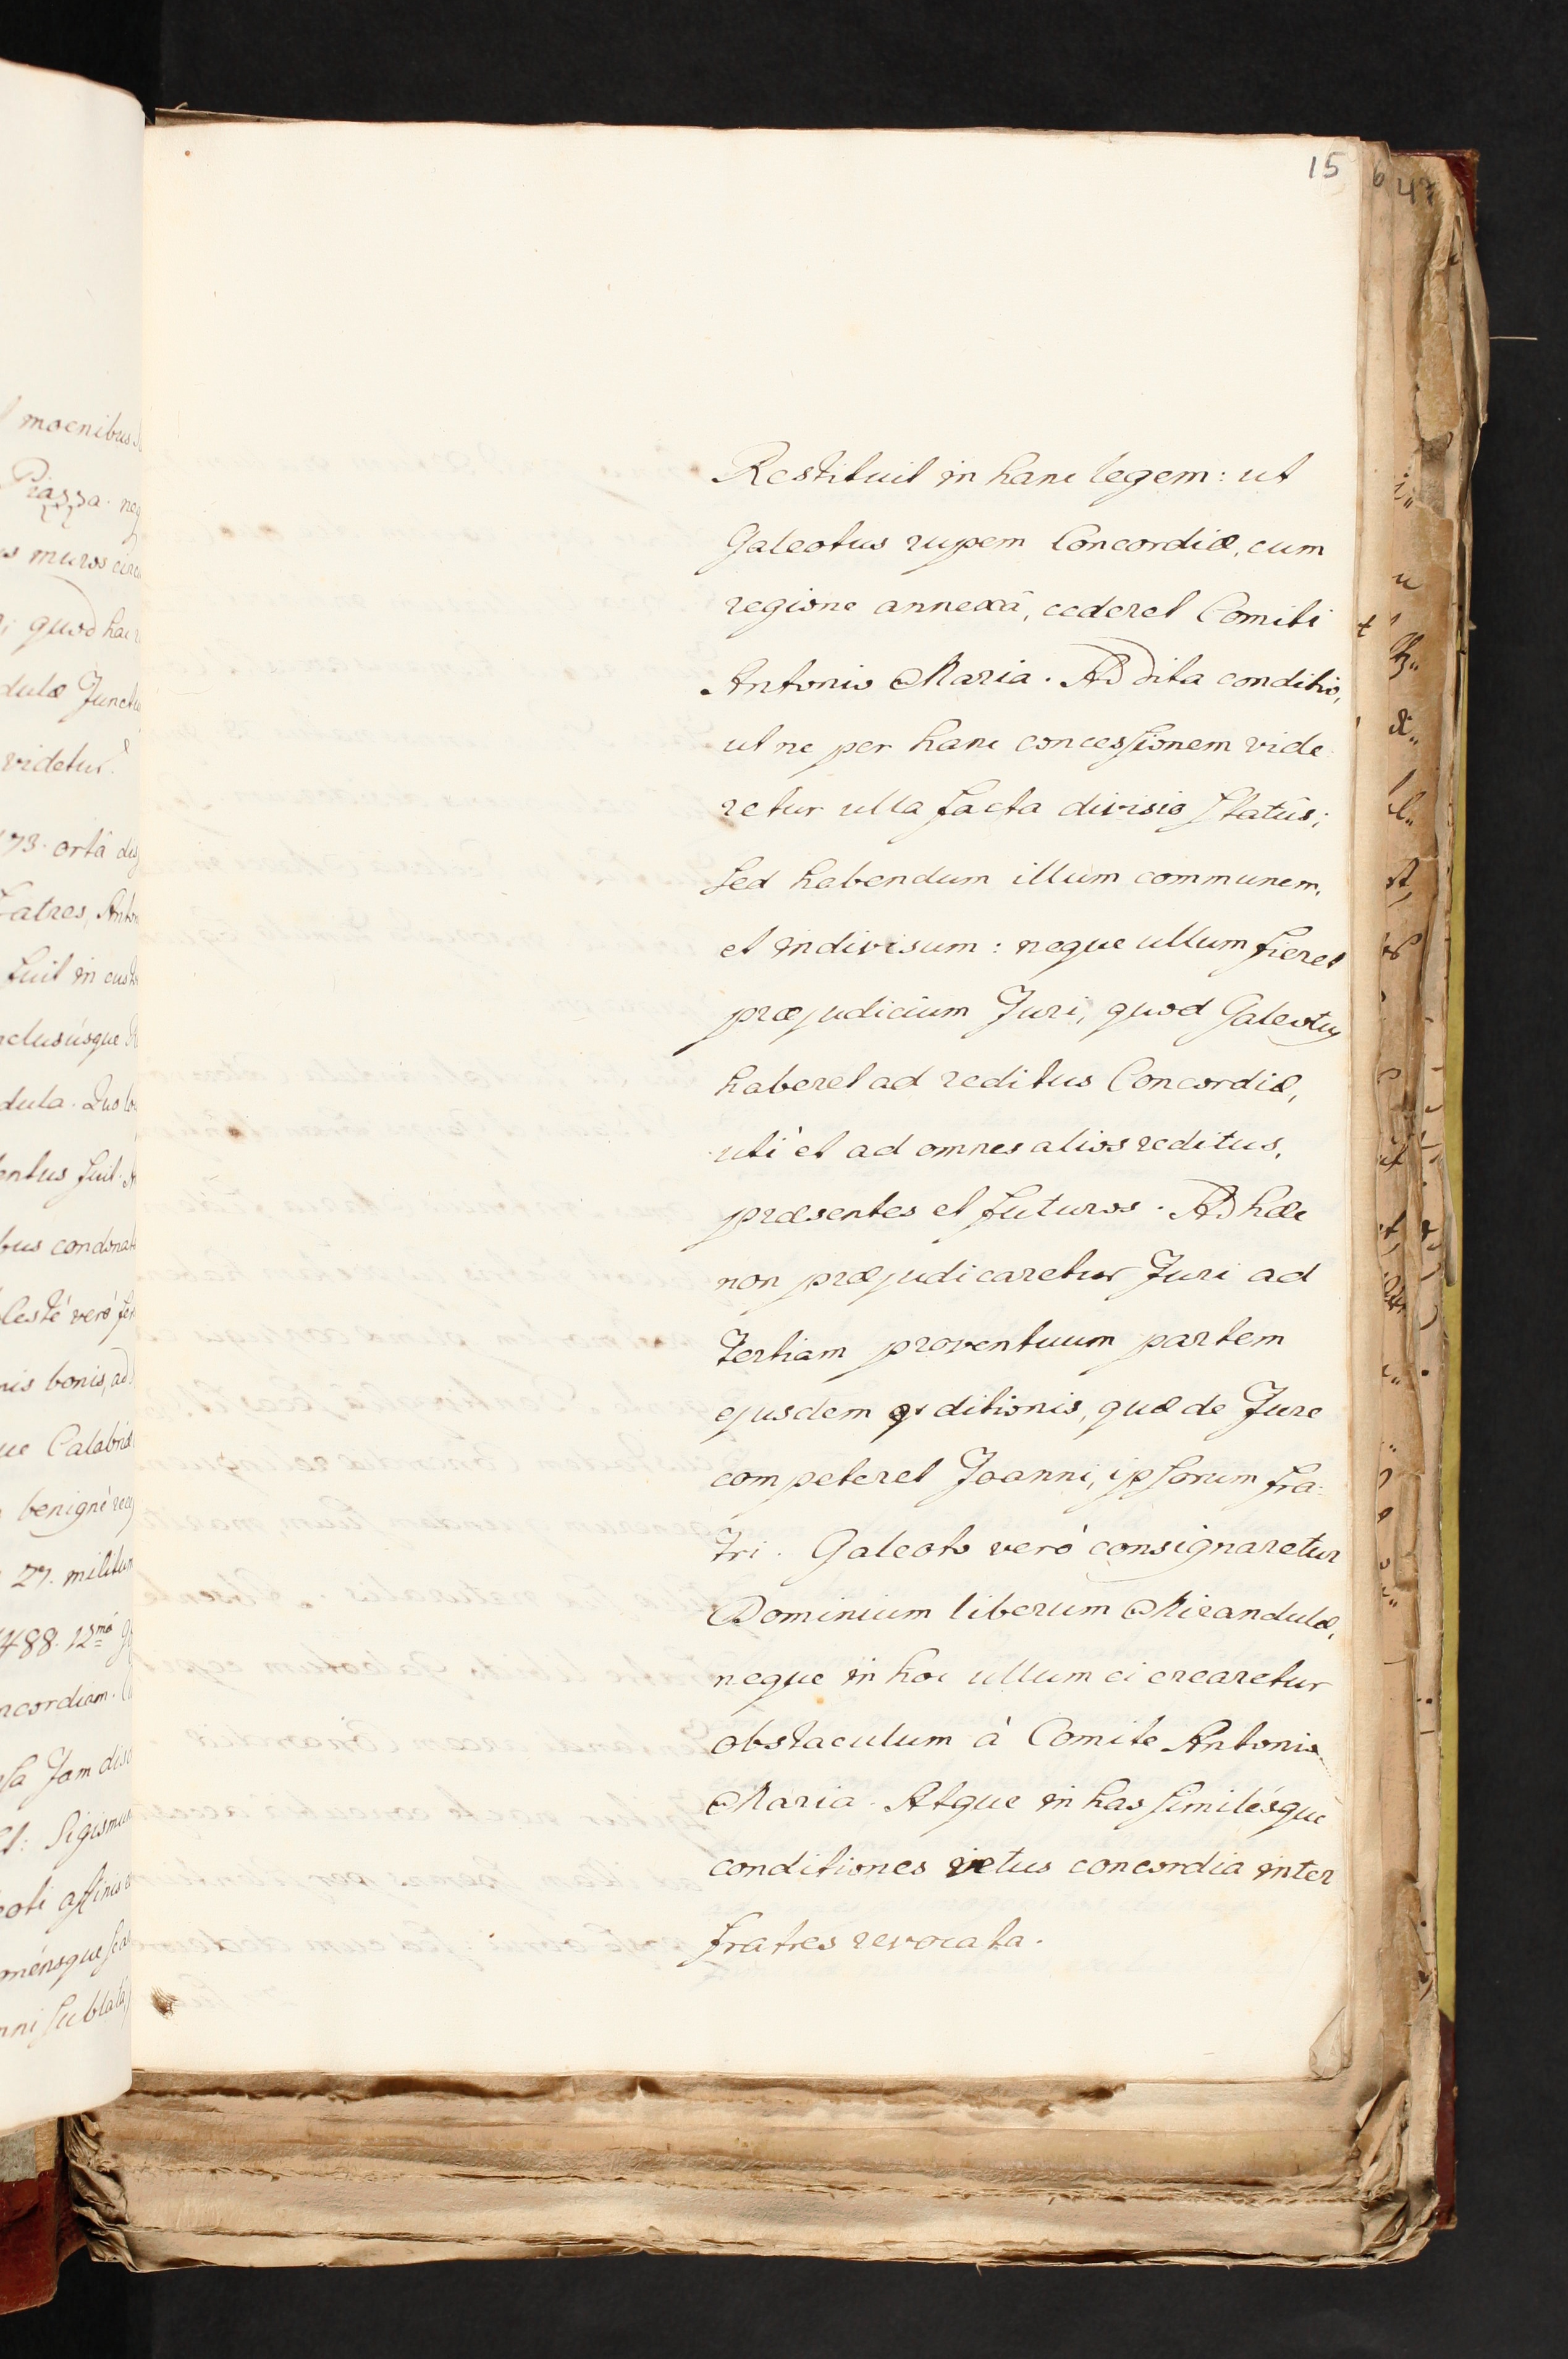 15
Restituit in hanc legem: ut
Galeotus rupem Concordiæ, cum
regione annexâ, cederet Comiti
Antonio Maria. Addita conditio,
ut ne per hanc concessionem vide
retur ulla facta divisio Statûs;
sed habendum illum communem,
et indivisum: neque ullum fieret
præjudicium Juri, quod Galeotus
haberet ad reditus Concordiæ,
uti et ad omnes alios reditus,
præsentes et futuros. Ad hæc
non præjudicaretur Juri ad
Tertiam proventuum partem
ejusdem ditionis, quæ de Jure
competeret Joanni, ipsorum fra:
tri. Galeoto verò consignaretur
Dominium liberum Mirandulæ,
neque in hoc ullum ei crearetur
obstaculum à Comite Antonio
Maria. Atque in has similésque
conditiones vetus concordia inter
fratres revocata.
moenibus
Piazza. neq
muros circ
quod hac
dulæ Junct
videtur.
173. ortâ dis
Fatres, Anto
fuit in cust
clusúsque
dula. Quo lo
entus fuit.
bus condonat
lestè verò fer
nis bonis, ad
ue Calabriæ
benignè rece
27. militum
1488. 12mâ
ncordiam.
sa Jam disc
Sigismun
eoti affinis
oménsque
nni sublatâ